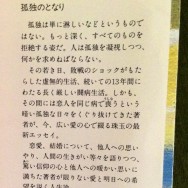 孤独のとなり
孤独は単に淋しいなどというもので
はない。もっと深く、すべてのものを
拒絶する姿だ。人は孤独を凝視しつつ、
何かを求めねばならない。
その若き日、敗戦のショックがもた
らした虚無的生活、続いての13年間に
わたる長く厳しい闘病生活。しかも、
その間には恋人を同じ病で喪うという
暗い孤独な日々をくぐり抜けてきた著
者が、今、広い愛の心で綴る珠玉の最
新エッセイ。
恋愛、結婚について、他人への思い
やり、人間の生きがい等々を語りつつ、
篤い信仰の心と他人への暖かい思いに
満ちた著者が限りない愛と明日への希
望を説く人生論。